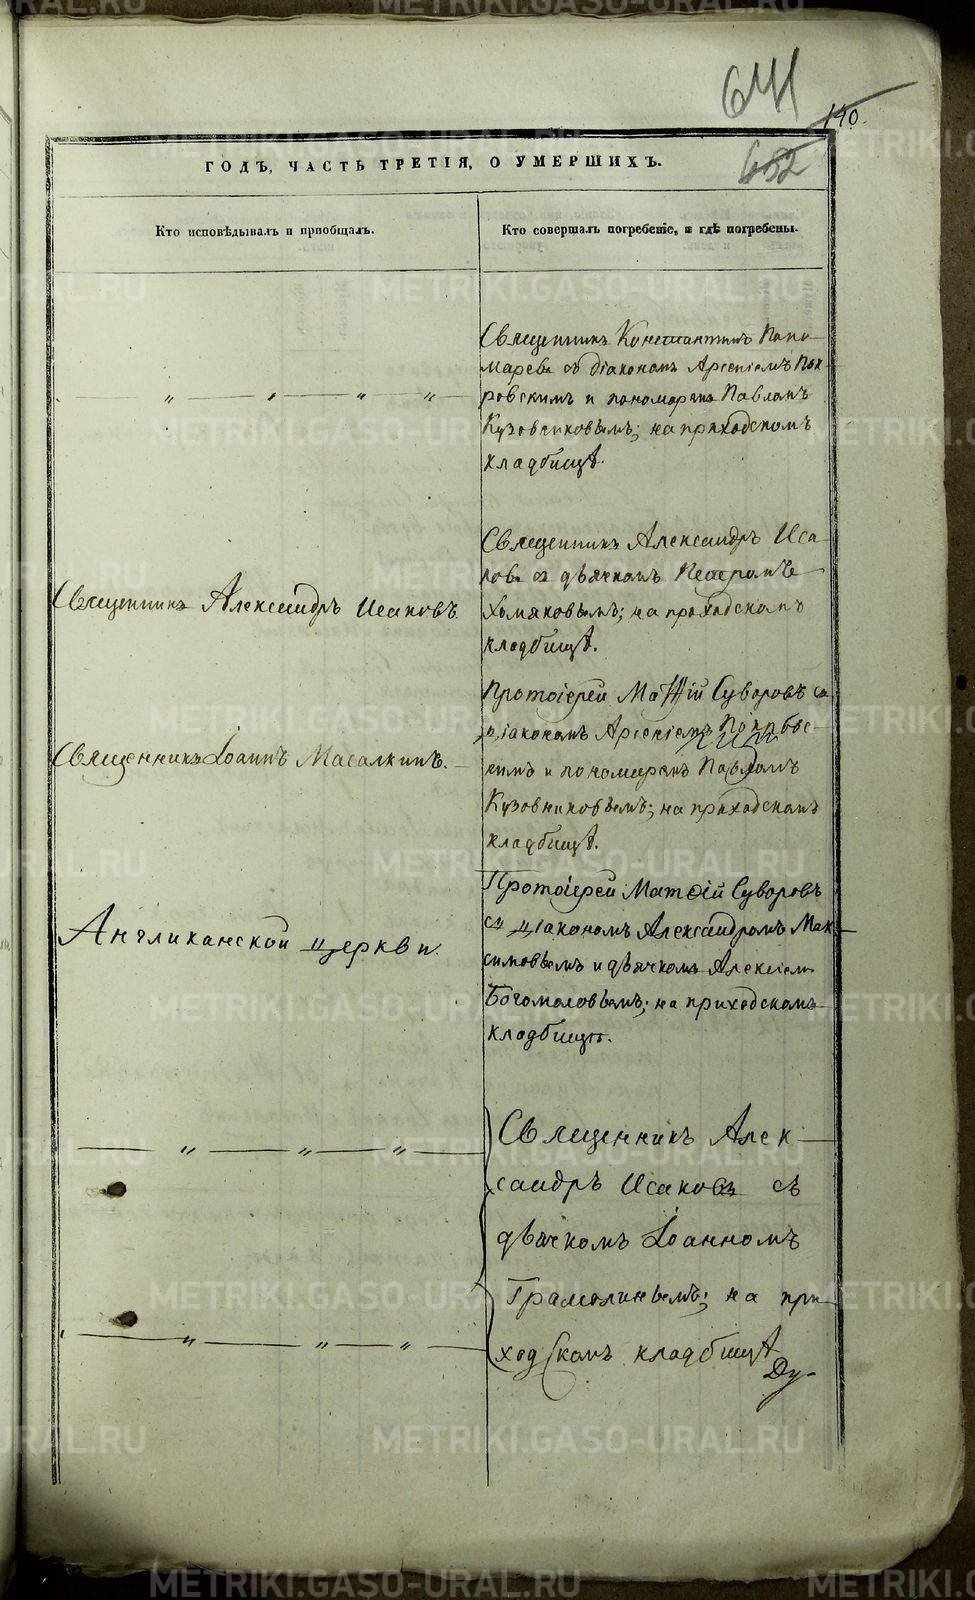 641
140.
652
ГОДЪ, ЧАСТЬ ТРЕТІЯ, О УМЕРШИХЪ.
Кто исповѣдывалъ и пріобщалъ.
Кто совершалъ погребеніе, и гдѣ погребены.
Священникъ Константинъ Поно-
маревъ съ діакономъ Арсеніемъ Пок-
ровскимъ и пономаремъ Павломъ
Кузовниковымъ; на приходскомъ
кладбищѣ.
Священникъ Александръ Исаковъ.
Священникъ Александръ Иса-
ковъ съ дьячкомъ Петромъ
Хомяковымъ; на приходскомъ
кладбищѣ.
Священникъ Іоаннъ Масалкинъ.
Протоіерей Матѳій Суворовъ съ
діакономъ Арсеніемъ
скимъ и пономаремъ Павломъ
Кузовниковымъ; на приходскомъ
кладбищѣ.
Англиканской церкви.
Протоіерей Матѳій Суворовъ
съ діакономъ Александромъ Мак-
симовымъ и дьячкомъ Алексіемъ
Богомоловымъ; на приходскомъ
кладбищѣ.
Священникъ Алек-
сандръ Исаковъ съ
дьячкомъ Іоанномъ
Грамолинымъ; на при-
ходскомъ кладбищѣ
Ду-
METRIKI.GASO-URAL.RU